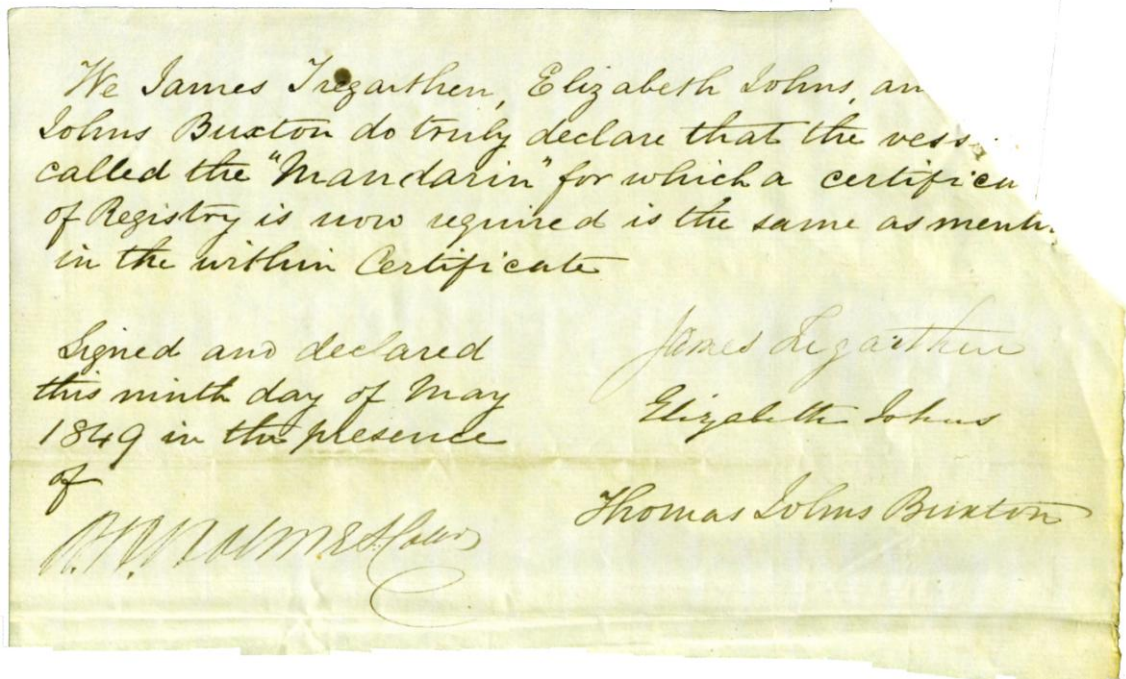 We James Tregarthen, Elizabeth Johns, an
Johns Buxton do truly declare that the vess
called the "Mandarin" for which a certifica
of Registry is now required is the same as ment
in the within Certificate
Signed and declared
this ninth day of May
1849 in the presence
of
James Tregarthen
Elizabeth Johns
Thomas Johns Buxton